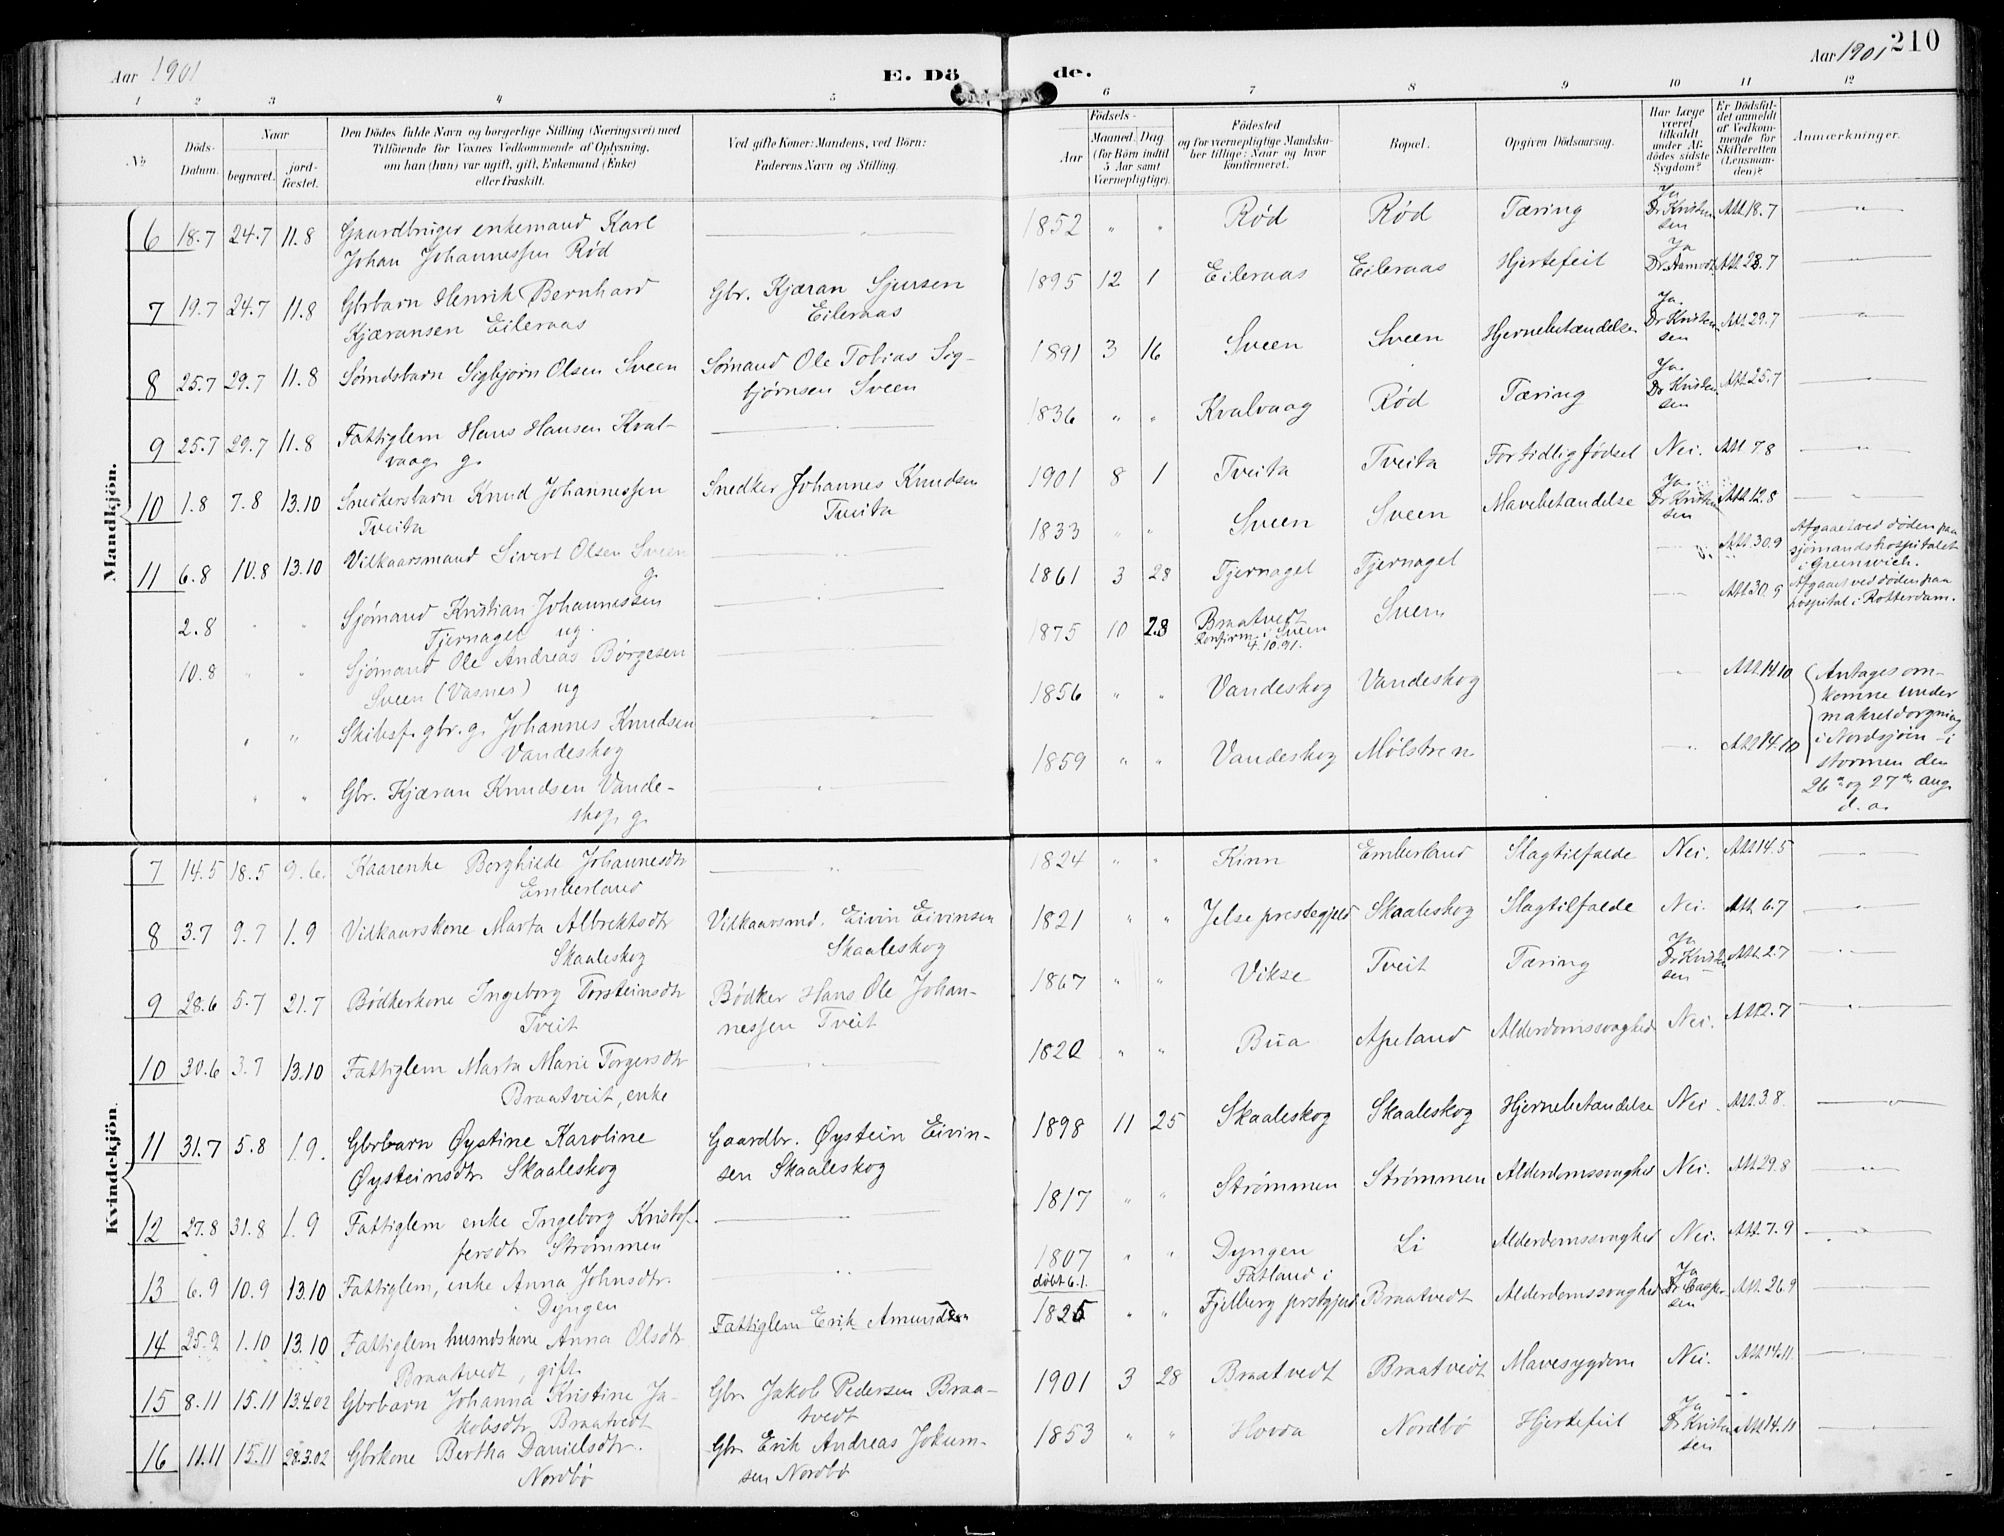 Aar 1901
E. Dö
de.
Aar 1901
210
1 2 3 4 5 6 7 8 9 10 11 12
No
Döds-Datum.
Naar
begravet.
jord-fæstet.
Den Dödes fulde Navn og borgerlige Stilling (Næringsvei) med
Tilföiende for Voxnes Vedkommende af Oplysning,
om han (hun) var ugift, gift, Enkemand (Enke)
eller fraskilt.
Ved gifte Koner: Mandens, ved Börn:
Faderens Navn og Stilling.
Födsels-
Aar
Maaned. Dag
(for Börn indtil
5 Aar samt
Værnepligtige).
Födested
og for værnepligtige Mandska-
ber tillige: Naar og hvor
konfirmeret.
Bopæl.
Opgiven Dödsaarsag.
Har Læge
været
tilkaldt
under Af-
dödes sidste
Sygdom?
Er Dödsfal-
det anmeldt
af Vedkom-
mende for
Skifteretten
(Lensman-
den)?
Anmærkninger.
Mandkjön.
6 18.7 24.7 11.8 Gaardbruger enkemand Karl
Johan Johannessen Rød — " — 1852 " " Rød Rød Tæring Ja Dr Kristensen Att 18.7 — " —
7 19.7 24.7 11.8 Gbrbarn Henrik Bernhard
Kjæransen Eileraas Gbr. Kjæran Sjursen
Eileraas 1895 12 1 Eileraas Eileraas Hjertefeil Ja Dr Att 28.7 — " —
8 25.7 29.7 11.8 Sømdsbarn Sigbjørn Olsen Sveen Sømand Ole Tobias Sig-
bjørnsen Sveen 1891 3 16 Sveen Sveen Hjernebetændelse Ja. Dr Kristensen Att 29.7 — " —
9 25.7 29.7 11.8 Fattiglem Hans Hansen Kval-
vaag g. — " — 1836 " " Kvalvaag Rød Tæring Ja. Dr Kristensen Att 25.7 — " —
10 1.8 7.8 13.10 Snedkersbarn Knud Johannessen
Tveita Snedker Johannes Knudsen
Tveita 1901 8 1 Tveita Tveita For tidlig fødsel Nei. Att 7.8 — " —
11 6.8 10.8 13.10 Vilkaarsmand Sivert Olsen Sveen
g. — " — 1833 " " Sveen Sveen Mavebetændelse Ja. Dr Kristensen Att 12.8 — " —
2.8 " " Sjømand Kristian Johannessen
Tjernagel ug. — " — 1861 3 28 Tjernagel Tjernagel — " — Att 30.9 Afgaaet ved døden paa
sjømandshospitalet
i Greenwich.
10.8 " " Sjømand Ole Andreas Børgesen
Sveen (Vasnes) ug — " — 1875 10 28 Braatvedt
konfirm. i Sveen
4.10.91. Sveen — " — Att 30.9 Afgaaet ved døden paa
hospital i Rotterdam.
" " Skibsf. gbr. g. Johannes Knudsen
Vandeskog — " — 1856 " " Vandeskog Vandeskog — " — Att 14.10 Antages om-
komne under
makreldorgning
i Nordsjøen i
stormen den
26de og 27de aug.
d. a.
" " Gbr. Kjæran Knudsen Vande-
skog, g. — " — 1859 " " Vandeskog Mølstren — " — Att 14.10
Kvindekjön.
7 14.5 18.5 9.6. Kaarenke Borghilde Johannesdtr
Emberland — " — 1824 " " Kinn Emberland Slagtilfælde Nei. Att 14.5 — " —
8 3.7 9.7 1.9 Vilkaarskone Marta Albrektsdtr
Skaaleskog Vilkaarsmd. Eivin Eivinsen
Skaaleskog 1821 " " Jelse prestegjeld Skaaleskog Slagtilfælde Nei. Att 6.7 — " —
9 28.6 5.7 21.7 Bødkerkone Ingeborg Torsteinsdtr
Tveit Bødker Hans Ole Johan-
nessen Tveit 1867 " " Vikse Tveit Tæring Ja Dr Kristensen Att 2.7 — " —
10 30.6 3.7 13.10 Fattiglem Marta Marie Torgersdtr
Braatveit, enke — " — 1820 " " Bua Apeland Alderdomssvaghed Nei. Att 2.7 — " —
11 31.7 5.8 1.9. Gbrbarn Øystine Karoline
Øysteinsdtr Skaaleskog Gaardbr. Øystein Eivin-
sen Skaaleskog 1898 11 25 Skaaleskog Skaaleskog Hjernebetændelse Nei. Att. 3.8. — " —
12 27.8 31.8 1.9 Fattiglem enke Ingeborg Kristof-
fersdtr Strømmen — " — 1817 " " Strømmen Strømmen Alderdomssvaghed Nei. Att 29.8 — " —
13 6.9 10.9 13.10 Fattiglem, enke Anna Johnsdtr.
Dyngen — " — 1807
døbt 6.1. " " Dyngen Li Alderdomssvaghed Nei. Att. 7.9 — " —
14 25.9 1.10 13.10 Fattiglem husmdskone Anna Olsdtr
Braatvedt, gift Fattiglem Erik Amundsen 1825 " " Fatland i
Fjelberg prstgjeld Braatvedt Alderdomssvaghed Ja Dr Caspersen Att. 26.9 — " —
15 8.11 15.11 13.4.02 Gbrbarn Johanna Kristine Ja-
kobsdtr Braatvedt Gbr Jakob Pedersen Braa-
tvedt 1901 3 28 Braatvedt Braatveidt Mavesygdom Nei. Att 14.11 — " —
16 11.11 15.11 28.3.02 Gbrkone Bertha Danielsdtr.
Nordbø Gbr Erik Andreas Jokum-
sen Nordbø 1853 " " Hovda Nordbø Hjertefeil Ja Dr Kristensen Att 14.11 — " —